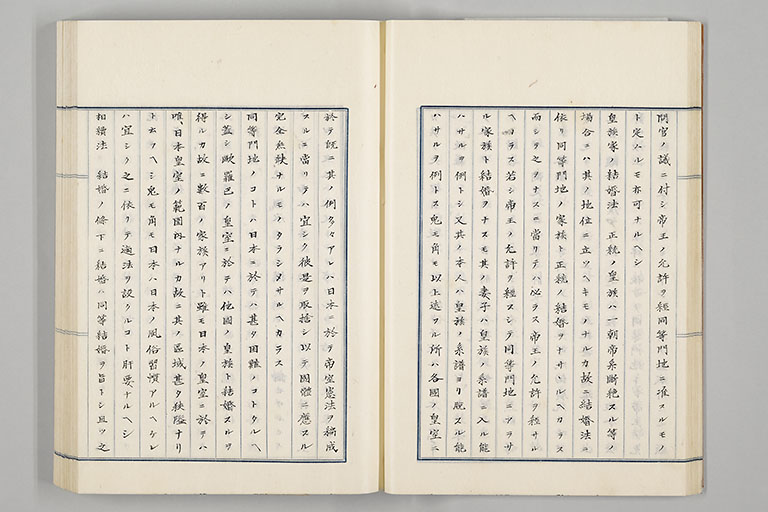 問官ノ議ニ付シ帝王ノ允許ヲ經同等門地ニ准スルモノ
ト定ムルモ亦可ナルヘシ
皇族家ノ結婚法 正統ノ皇族ハ一朝帝系斷絶スル等ノ
場合ニハ其ノ地位ニ立ツヘキモノナルカ故ニ結婚法ニ
依リ同等門地ノ家族ト正統ノ結婚ヲナサヽルヘカラス
而シテ之ヲナスニ當リテハ必ラス帝王ノ允許ヲ經サル
ヘカラス若シ帝王ノ允許ヲ經スシテ同等門地ニアラサ
ル家族ト結婚ヲナスモ其ノ妻子ハ皇族ノ系譜ニ入ル能
ハサルヲ例トシ又其ノ本人ハ皇族ノ系譜ヨリ脱スル能
ハサルヲ例トス兎モ角モ以上述フル所ハ各國ノ皇室ニ
於テ既ニ其ノ例多々アレハ日本ニ於テ帝室憲法ヲ編成
スルニ當リテハ宜シク彼是ヲ取捨シ以テ國體ニ應スル
完全無缺ナルモノタラシメサルヘカラス
同等門地ノコトハ日本ニ於テハ甚タ困難ノコトタルヘ
シ蓋シ歐羅巴ノ皇室ニ於テハ他國ノ皇族ト結婚スルヲ
得ルカ故ニ數百ノ家族アリト雖モ日本ノ皇室ニ於テハ
唯日本皇室ノ範圍内ナルカ故ニ其ノ區域甚タ狹隘ナリ
ト云フヘシ兎モ角モ日本ハ日本ノ風俗習慣アルヘケレ
ハ宜シク之ニ依リテ適法ヲ設クルコト肝要ナルヘシ
相續法 結婚ノ條下ニ結婚ハ同等結婚ヲ旨トシ且ツ之